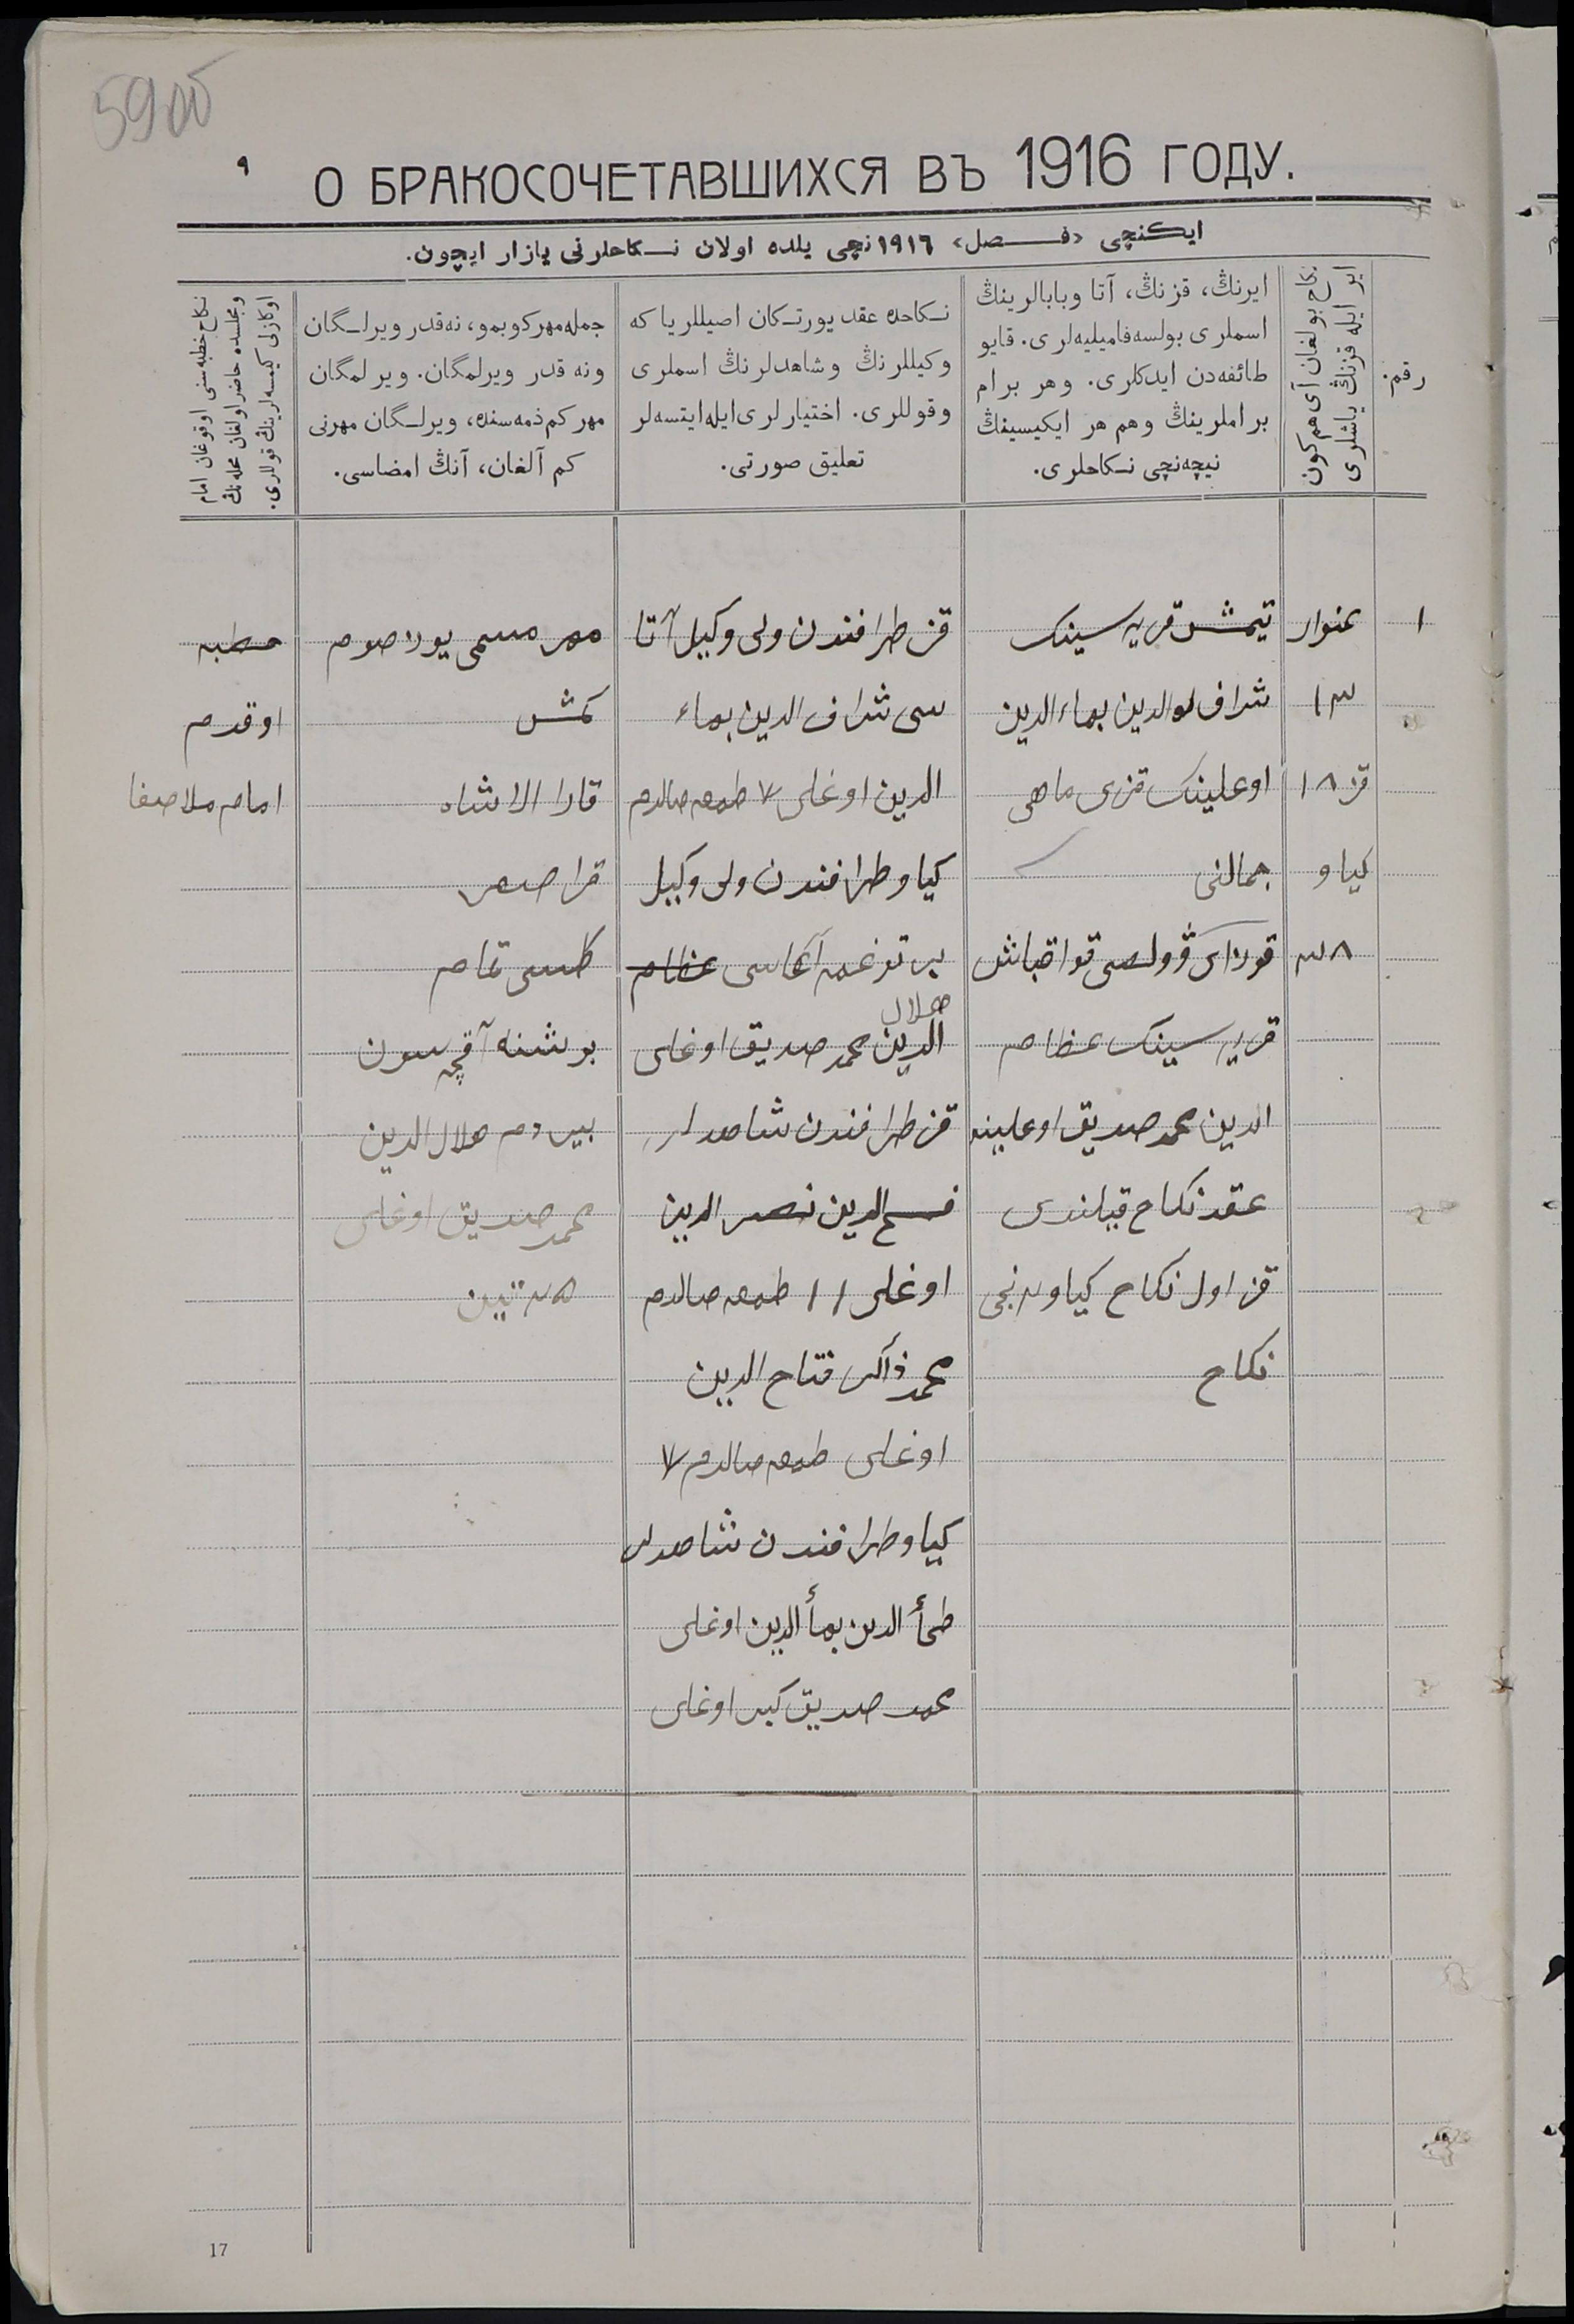 59 об
٩
О БРАКОСОЧЕТАВШИХСЯ ВЪ 1916 ГОДУ.
ایکنچی «فصل» ١٩١٦ نچی یلده اولان نکاحلرنی یازار ایچون.
رقم.
نکاح بولغان آی هم کون
ایر ایله قزنڭ یاشلری
ایرنڭ، قزنڭ، آتا وبابالرینڭ
اسملری بولسه فامیلیه‌لری. قایو
طائفه‌دن ایدکلری. وهر برام
براملرینڭ وهم هر ایکیسینڭ
نیچه‌نچی نکاحلری.
نکاحده عقد یورتکان اصیللر یا که
وکیللرنڭ وشاهدلرنڭ اسملری
وقوللری. اختیارلری ایله ایتسه‌لر
تعلیق صورتی.
جمله مهر کوبمو، نه‌قدر ویرلگان
ونه قدر ویرلمگان. ویرلمگان
مهر کم ذمه‌سنده، ویرلگان مهرنی
کم آلغان، آنڭ امضاسی.
نکاح خطبه سنی اوقوغان امام
ومجلسده حاضر اولغان محله نڭ
اوکازلی کیمسه لرینڭ قوللری.
١
عنوار
١٣
قز ١٨
کیاو
٣٨
تیمش قریه سینک
شراف الدین بهاء الدین
اوغلینک قزی ماهی
جمالنی
قریه سینک عظام
الدین محمد صدیق اوغلینه
عقد نکاح قیلندی
قز اول نکاح کیاو ٢ نجی
نکاح
قز طرافندن ولی وکیل آتا
سی شراف الدین بهاء
الدین اوغلی ٧ طمعه صالدم
کیاو طرافندن ولی وکیل
بر توغمه آغاسی عظام
هلال
الدین محمد صدیق اوغلی
قز طرافندن شاهدلر
الدین نصر الدین
اوغلی ١١ طمعه صالدم
محمد ذاکر فتاح الدین
اوغلی طمعه صالدم ٧
کیاو طرافندن شاهدلر
الدین بهأ الدین اوغلی
محمد صدیق کبیر اوغلی
مهر مسمی یوز صوم
کمش
بیردم هلال الدین
محمد صدیق اوغلی
تین
خطبه
اوقدم
امام ملا صفا
17